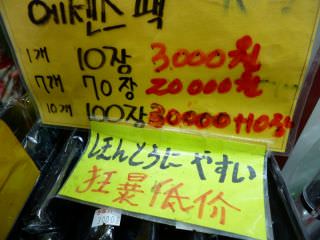 에센스 팩
1개 10장 3000원
7개 70장 20000원
10개 100장 30000+10장
ほんとうに やすい
狂暴低价